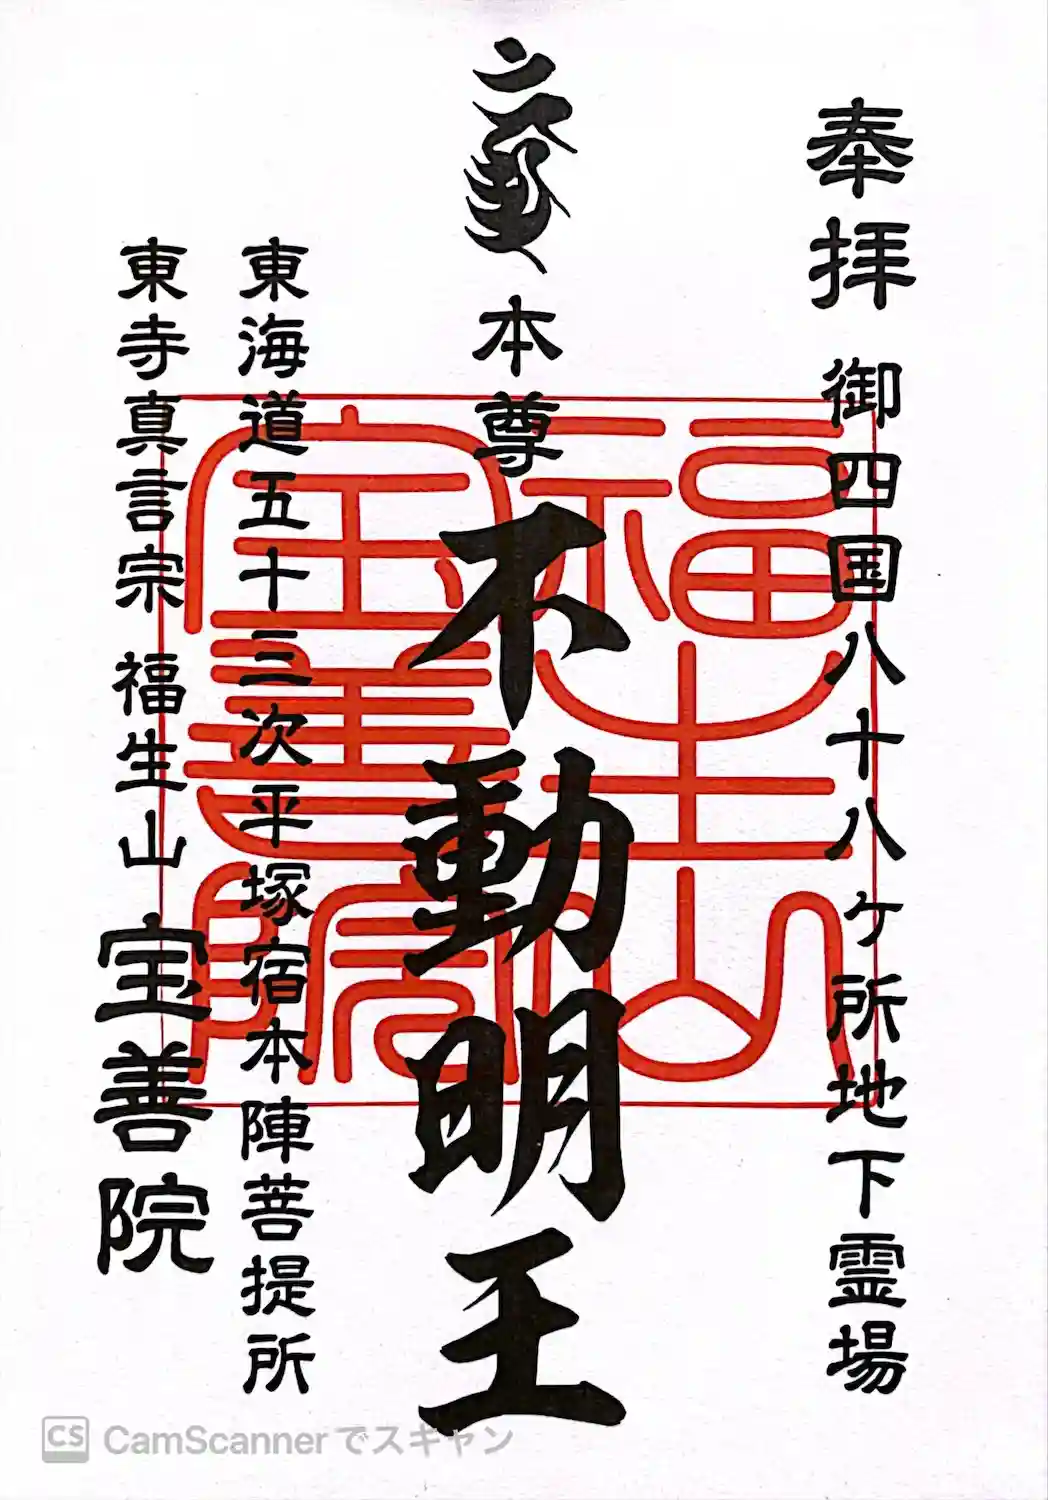 奉拝 御四国八十八ケ所地下霊場
本尊 不動明王
東海道五十三次平塚宿本陣菩提所
東寺真言宗 福生山 宝善院
福生山
宝善院
CS CamScannerでスキャン